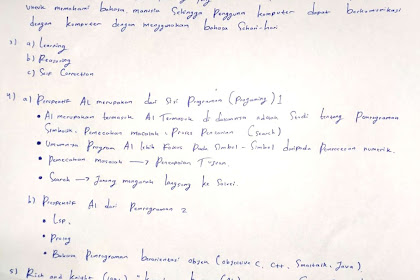 untuk memahami bahasa manusia sehingga pengguna komputer dapat berkomunikasi
dengan komputer dengan menggunakan bahasa sehari-hari
3) a) Learning
b) Reasoning
c) Self Correction
4) a) Perspektif AI merupakan dari sisi Programan
• AI merupakan termasuk AI Termasuk di dalamnya adalah Studi tentang Pemrograman
Simbolik, Pemecahan masalah, Proses Pencarian (Search)
• Umumnya Program AI lebih Fokus Pada Simbol-Simbol daripada Pemrosesan numerik.
• Pemecahan masalah → Pencapaian Tujuan
• Search → Jarang mengarah langsung ke Solusi.
b) Perspektif AI dari Pemrograman 2
• LISP,
• Prolog
• Bahasa Pemrograman berorientasi objek (Objective C, C++, Smalltalk, Java)
5) Rich and Knight